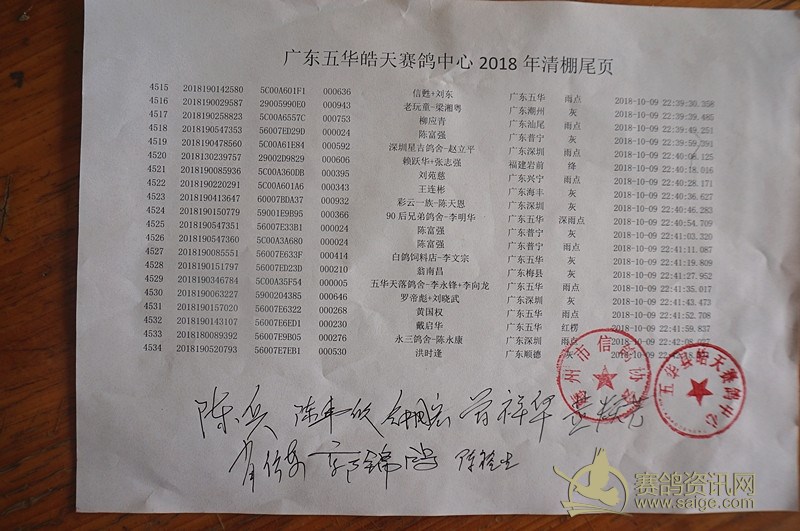 广东五华皓天赛鸽中心 2018 年清棚尾页
4515 2018190142580 5C00A601F1 000636 信甦+刘东 广东五华 雨点 2018-10-09 22:39:30.358
4516 2018190029587 29005990E0 000943 老玩童-梁湘粤 广东潮州 灰 2018-10-09 22:39:39.485
4517 2018190258823 5C00A6557C 000753 柳应青 广东汕尾 雨点 2018-10-09 22:39:49.251
4518 2018190547353 56007ED29D 000024 陈富强 广东普宁 灰 2018-10-09 22:39:59.391
4519 2018190478560 5C00A61E84 000592 深圳星吉鸽舍-赵立平 广东深圳 雨点 2018-10-09 22:40:08.125
4520 2018130239757 29002D9829 000606 赖跃华+张志强 福建岩前 绛 2018-10-09 22:40:18.016
4521 2018190085936 5C00A360DB 000395 刘苑慈 广东兴宁 雨点 2018-10-09 22:40:28.171
4522 2018190220291 5C00A601A6 000343 王连彬 广东海丰 灰 2018-10-09 22:40:36.627
4523 2018190413647 60007BDA37 000932 彩云一族-陈天恩 广东深圳 灰 2018-10-09 22:40:46.283
4524 2018190150779 59001E9B95 000366 90后兄弟鸽舍-李明华 广东五华 深雨点 2018-10-09 22:40:54.709
4525 2018190547351 56007E33B1 000024 陈富强 广东普宁 灰 2018-10-09 22:41:03.320
4526 2018190547360 5C00A3A680 000024 陈富强 广东普宁 雨点 2018-10-09 22:41:11.087
4527 2018190085551 56007E633F 000414 白鸽饲料店-李文宗 广东五华 灰 2018-10-09 22:41:19.809
4528 2018190151797 56007ED23D 000210 翁南昌 广东梅县 灰 2018-10-09 22:41:27.952
4529 2018190346784 5C00A35F54 000005 五华天落鸽舍-李永锋+李向龙 广东五华 雨点 2018-10-09 22:41:35.017
4530 2018190063227 5900204385 000646 罗帝彪+刘晓武 广东深圳 灰 2018-10-09 22:41:43.473
4531 2018190157020 56007E6322 000268 黄国权 广东五华 雨点 2018-10-09 22:41:52.708
4532 2018190143107 56007E6ED1 000230 戴启华 广东五华 红楞 2018-10-09 22:41:59.837
4533 2018180089392 56007E9B05 000276 永三鸽舍-陈永康 广东深圳 雨点 2018-10-09 22:42:08.027
4534 2018190520793 56007E7EB1 000530 洪时逢 广东顺德 灰 2018-10-09 22:42:18
州市信鸽协
五华县皓天赛鸽中心
陈兵 肖祥华
赛鸽资讯网
www.saige.com